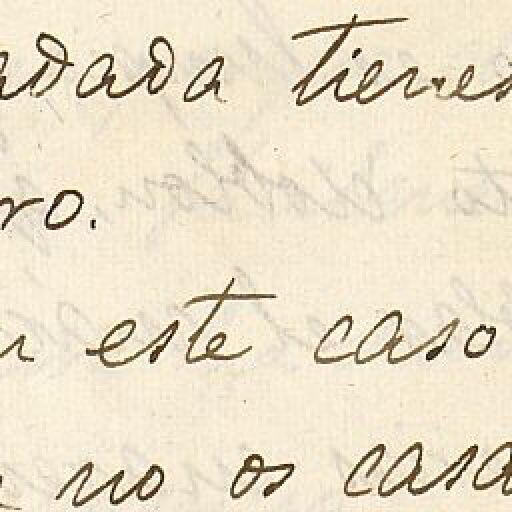 adada tienes
ro.
n este caso
no os casa